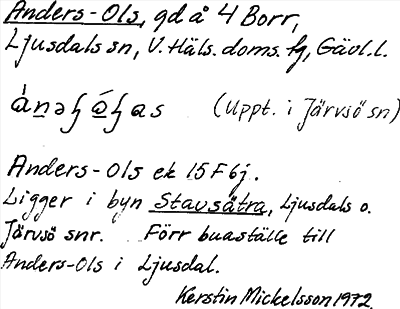 Anders-Ols, gd å 4 Borr,
Ljusdals sn, V. Häls. doms. fg, Gävl. l.
(Uppt. i Järvsö sn)
Anders-Ols ek 15F6j.
Ligger i byn Stavsätra, Ljusdals o.
Järvsö snr. Förr buaställe till
Anders-Ols i Ljusdal.
Kerstin Mickelsson 1972.